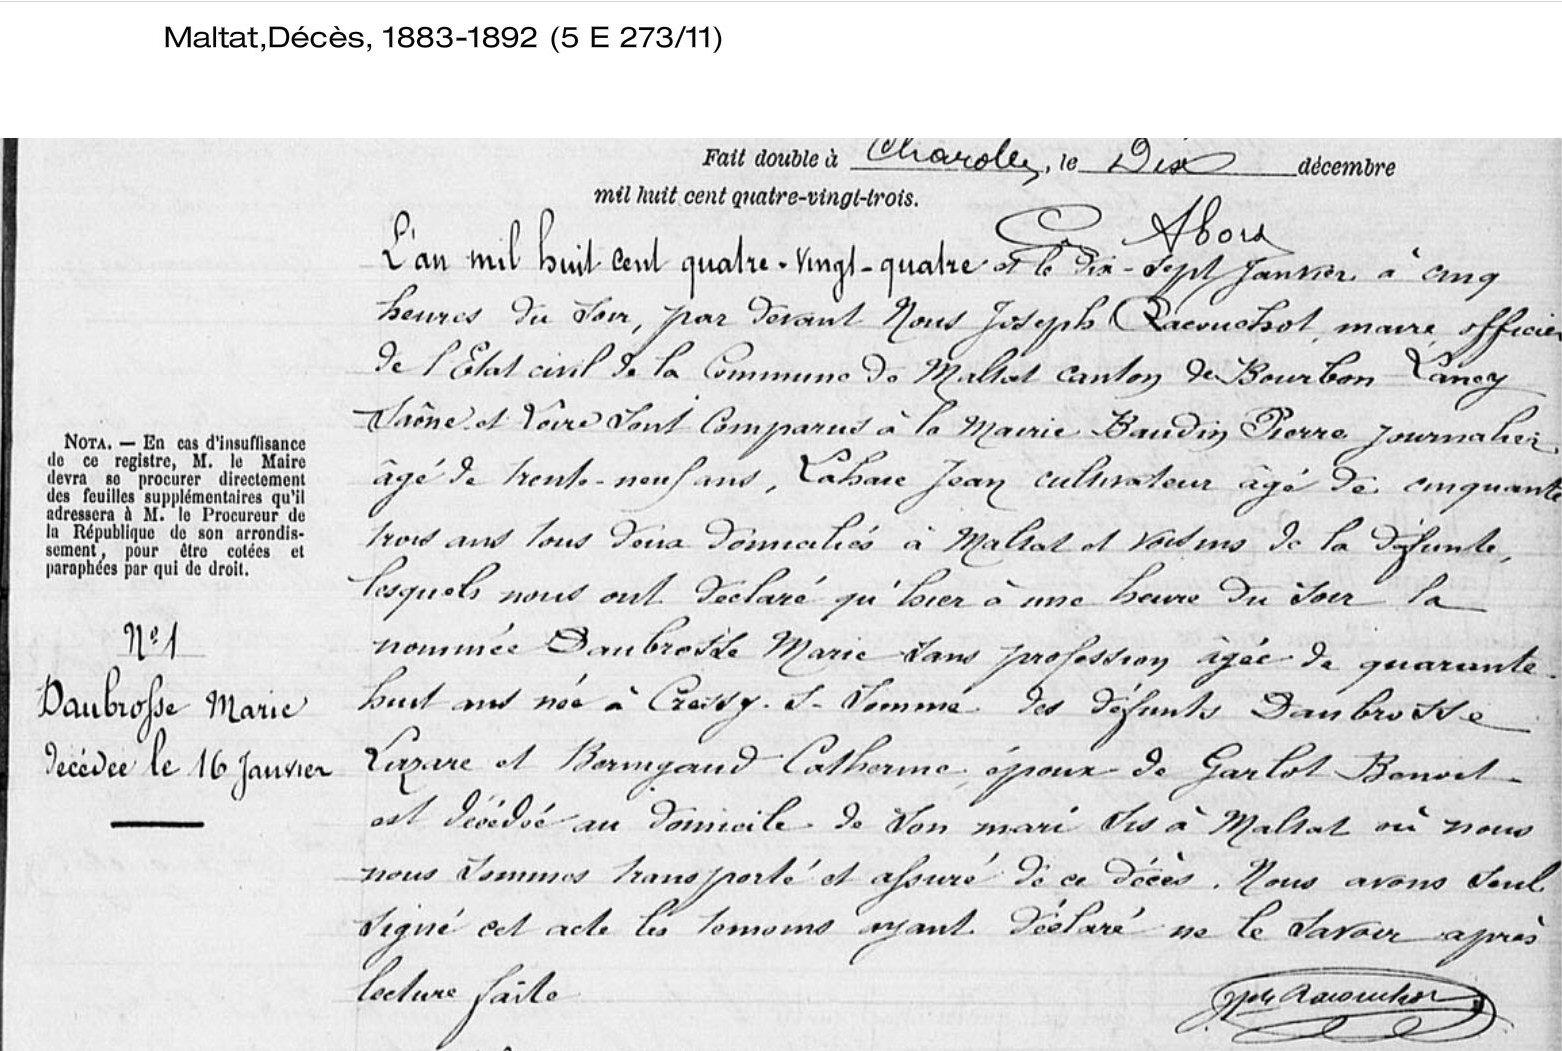 Maltat,Décès, 1883-1892 (5 E 273/11)
Fait double à Charolles, le Dix décembre
mil huit cent quatre-vingt-trois.
L'an mil huit cent quatre-vingt-quatre et le dix-sept Janvier à cinq
heures du Soir, par devant Nous Joseph Racouchot, maire, officier
de l'État civil de la Commune de Maltat canton de Bourbon Lancy
Saône et Loire Sont Comparus à la Mairie Baudin Pierre Journalier
âgé de trente-neuf ans, Lahaie Jean cultivateur âgé de cinquante
trois ans tous deux domiciliés à Maltat et voisins de la défunte,
lesquels nous ont déclaré qu'hier à une heure du Soir la
nommée Daubrosse Marie Sans profession âgée de quarante-
huit ans née à Cressy-S-Somme des défunts Daubrosse
Lazare et Catherine, époux de Garlot Benoit
est décédée au domicile de Son mari Sis à Maltat où nous
nous Sommes transporté et assuré de ce décès. Nous avons Seul
Signé cet acte les temoins ayant déclaré ne le Savoir après
lecture faite
Jph Racouchot
NOTA. — En cas d'insuffisance
de ce registre, M. le Maire
devra se procurer directement
des feuilles supplémentaires qu'il
adressera à M. le Procureur de
la République de son arrondis-
sement, pour être cotées et
paraphées par qui de droit.
N° 1
Daubrosse Marie
décédée le 16 Janvier